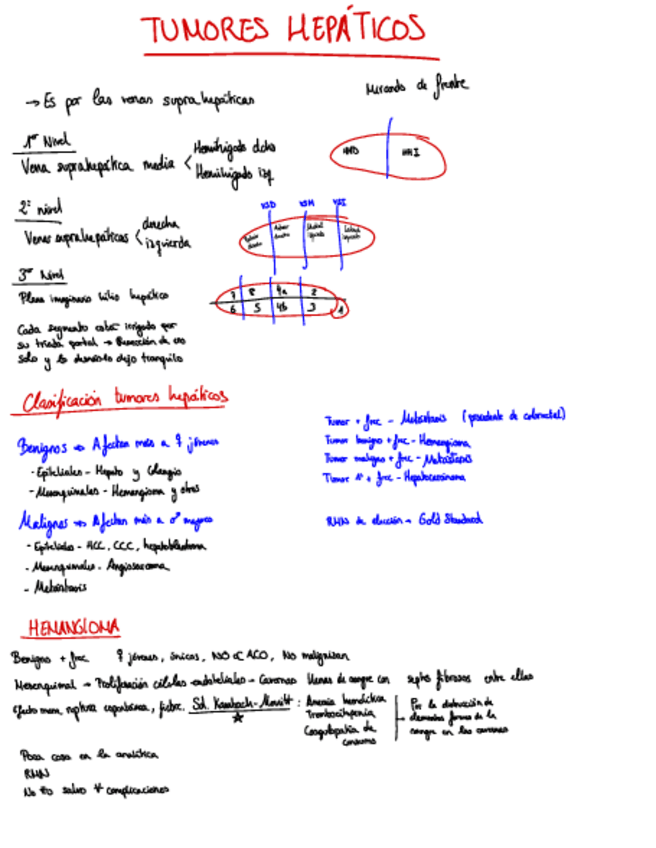 TUMORES HEPÁTICOS
→ Es por las venas suprahepáticas
Mirando de frente
1er Nivel
Vena suprahepática media < Hemihígado dcho
Hemihígado izq
HHD HHI
2º nivel
Venas suprahepáticas < derecha
izquierda
VSD VSM VSI
3er Nivel
Plano imaginario hilio hepático
7 8 4a 2
6 5 4b 3 1
Cada segmento está irrigado por
su triada portal → Resección de uno
solo y lo demás lo dejo tranquilo
Clasificación tumores hepáticos
Benignos → Afectan más a ♀ jóvenes
- Epiteliales - Hepato y Colangio
- Mesenquimales - Hemangioma y otros
Malignos → Afectan más a ♂ mayores
- Epiteliales - HCC, CCC, hepatoblastoma
- Mesenquimales - Angiosarcoma
- Metástasis
Tumor + frec - Metástasis (procedente de colorectal)
Tumor benigno + frec - Hemangioma
Tumor maligno + frec - Metástasis
Tumor 1º + frec - Hepatocarcinoma
RMN de elección → Gold Standard
HEMANGIOMA
Benigno + frec ♀ jóvenes, únicos, NO ACO, No malignizan
Mesenquimal → Proliferación células endoteliales - Cavernas llenas de sangre con septos fibrosos entre ellas
Efecto masa, ruptura espontánea, fiebre. Sd. Kasabach-Merritt : Anemia hemolítica
Trombocitopenia
Coagulopatía de
consumo
Por la destrucción de
elementos formes de la
sangre en las cavernas
Poca cosa en la analítica
RMN
No tto salvo complicaciones